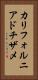 カリフォルニ
アドチザメ